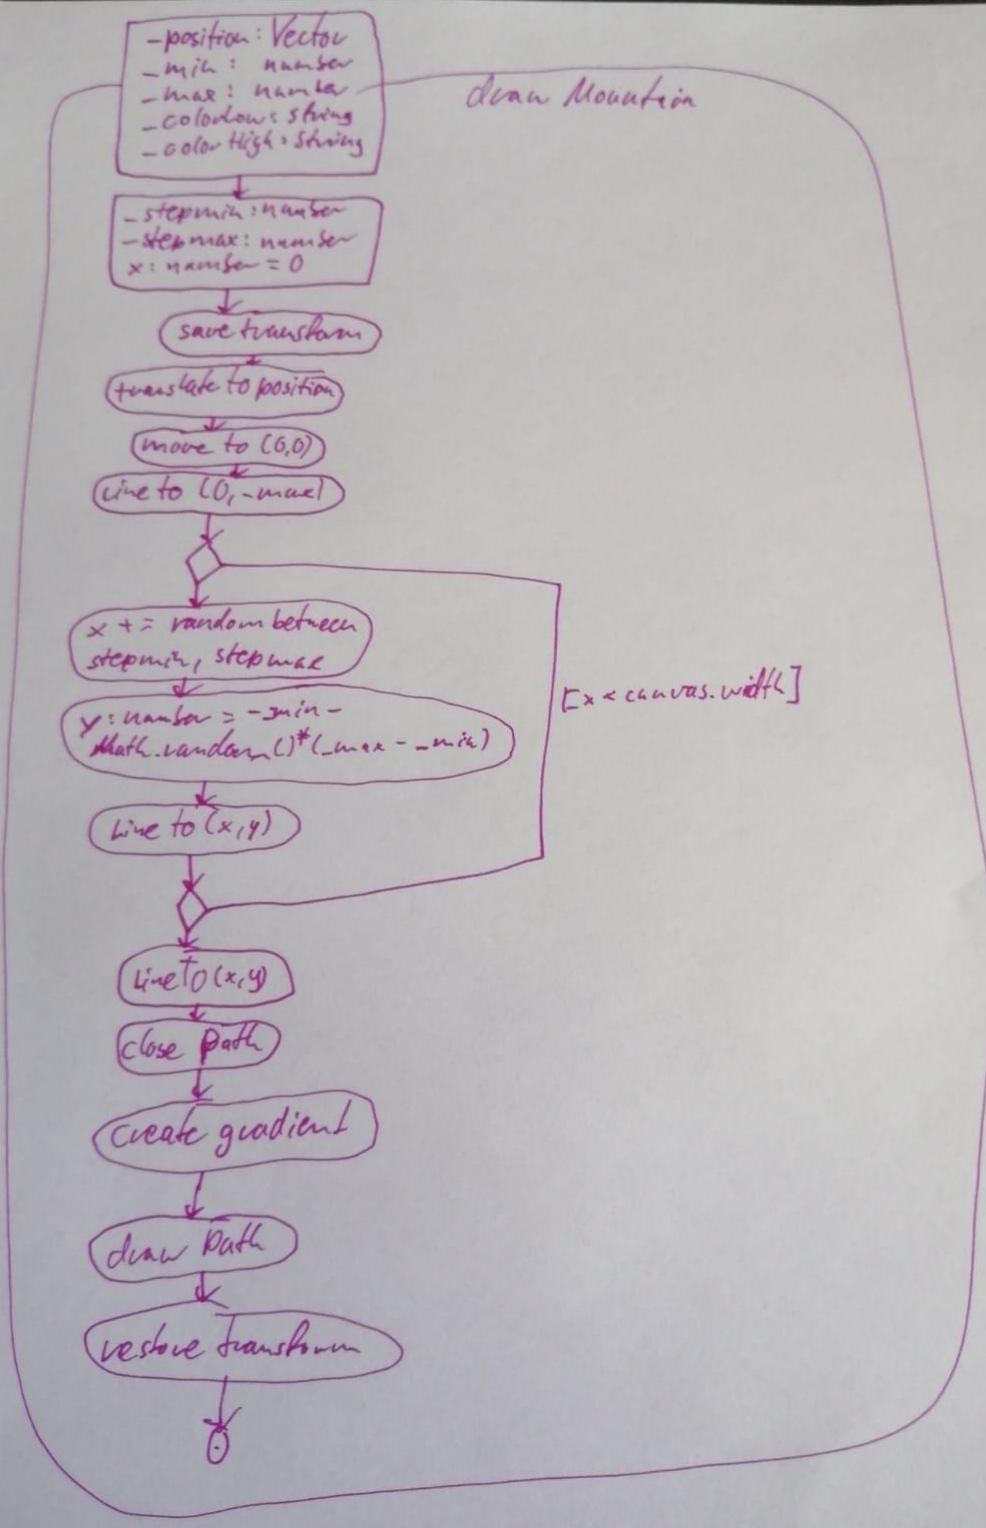 _position: Vector
_min: number
_max: number
_colorLow: string
_colorHigh: string
draw Mountain
_stepmin: number
_stepmax: number
x: number = 0
save transform
translate to position
move to (0,0)
Line to (0, _max)
x += random between
stepmin, stepmax
y: number = -_min -
Math.random()*(_max - _min)
[x < canvas.width]
Line to (x, y)
Line To (x, y)
close path
create gradient
draw path
restore transform